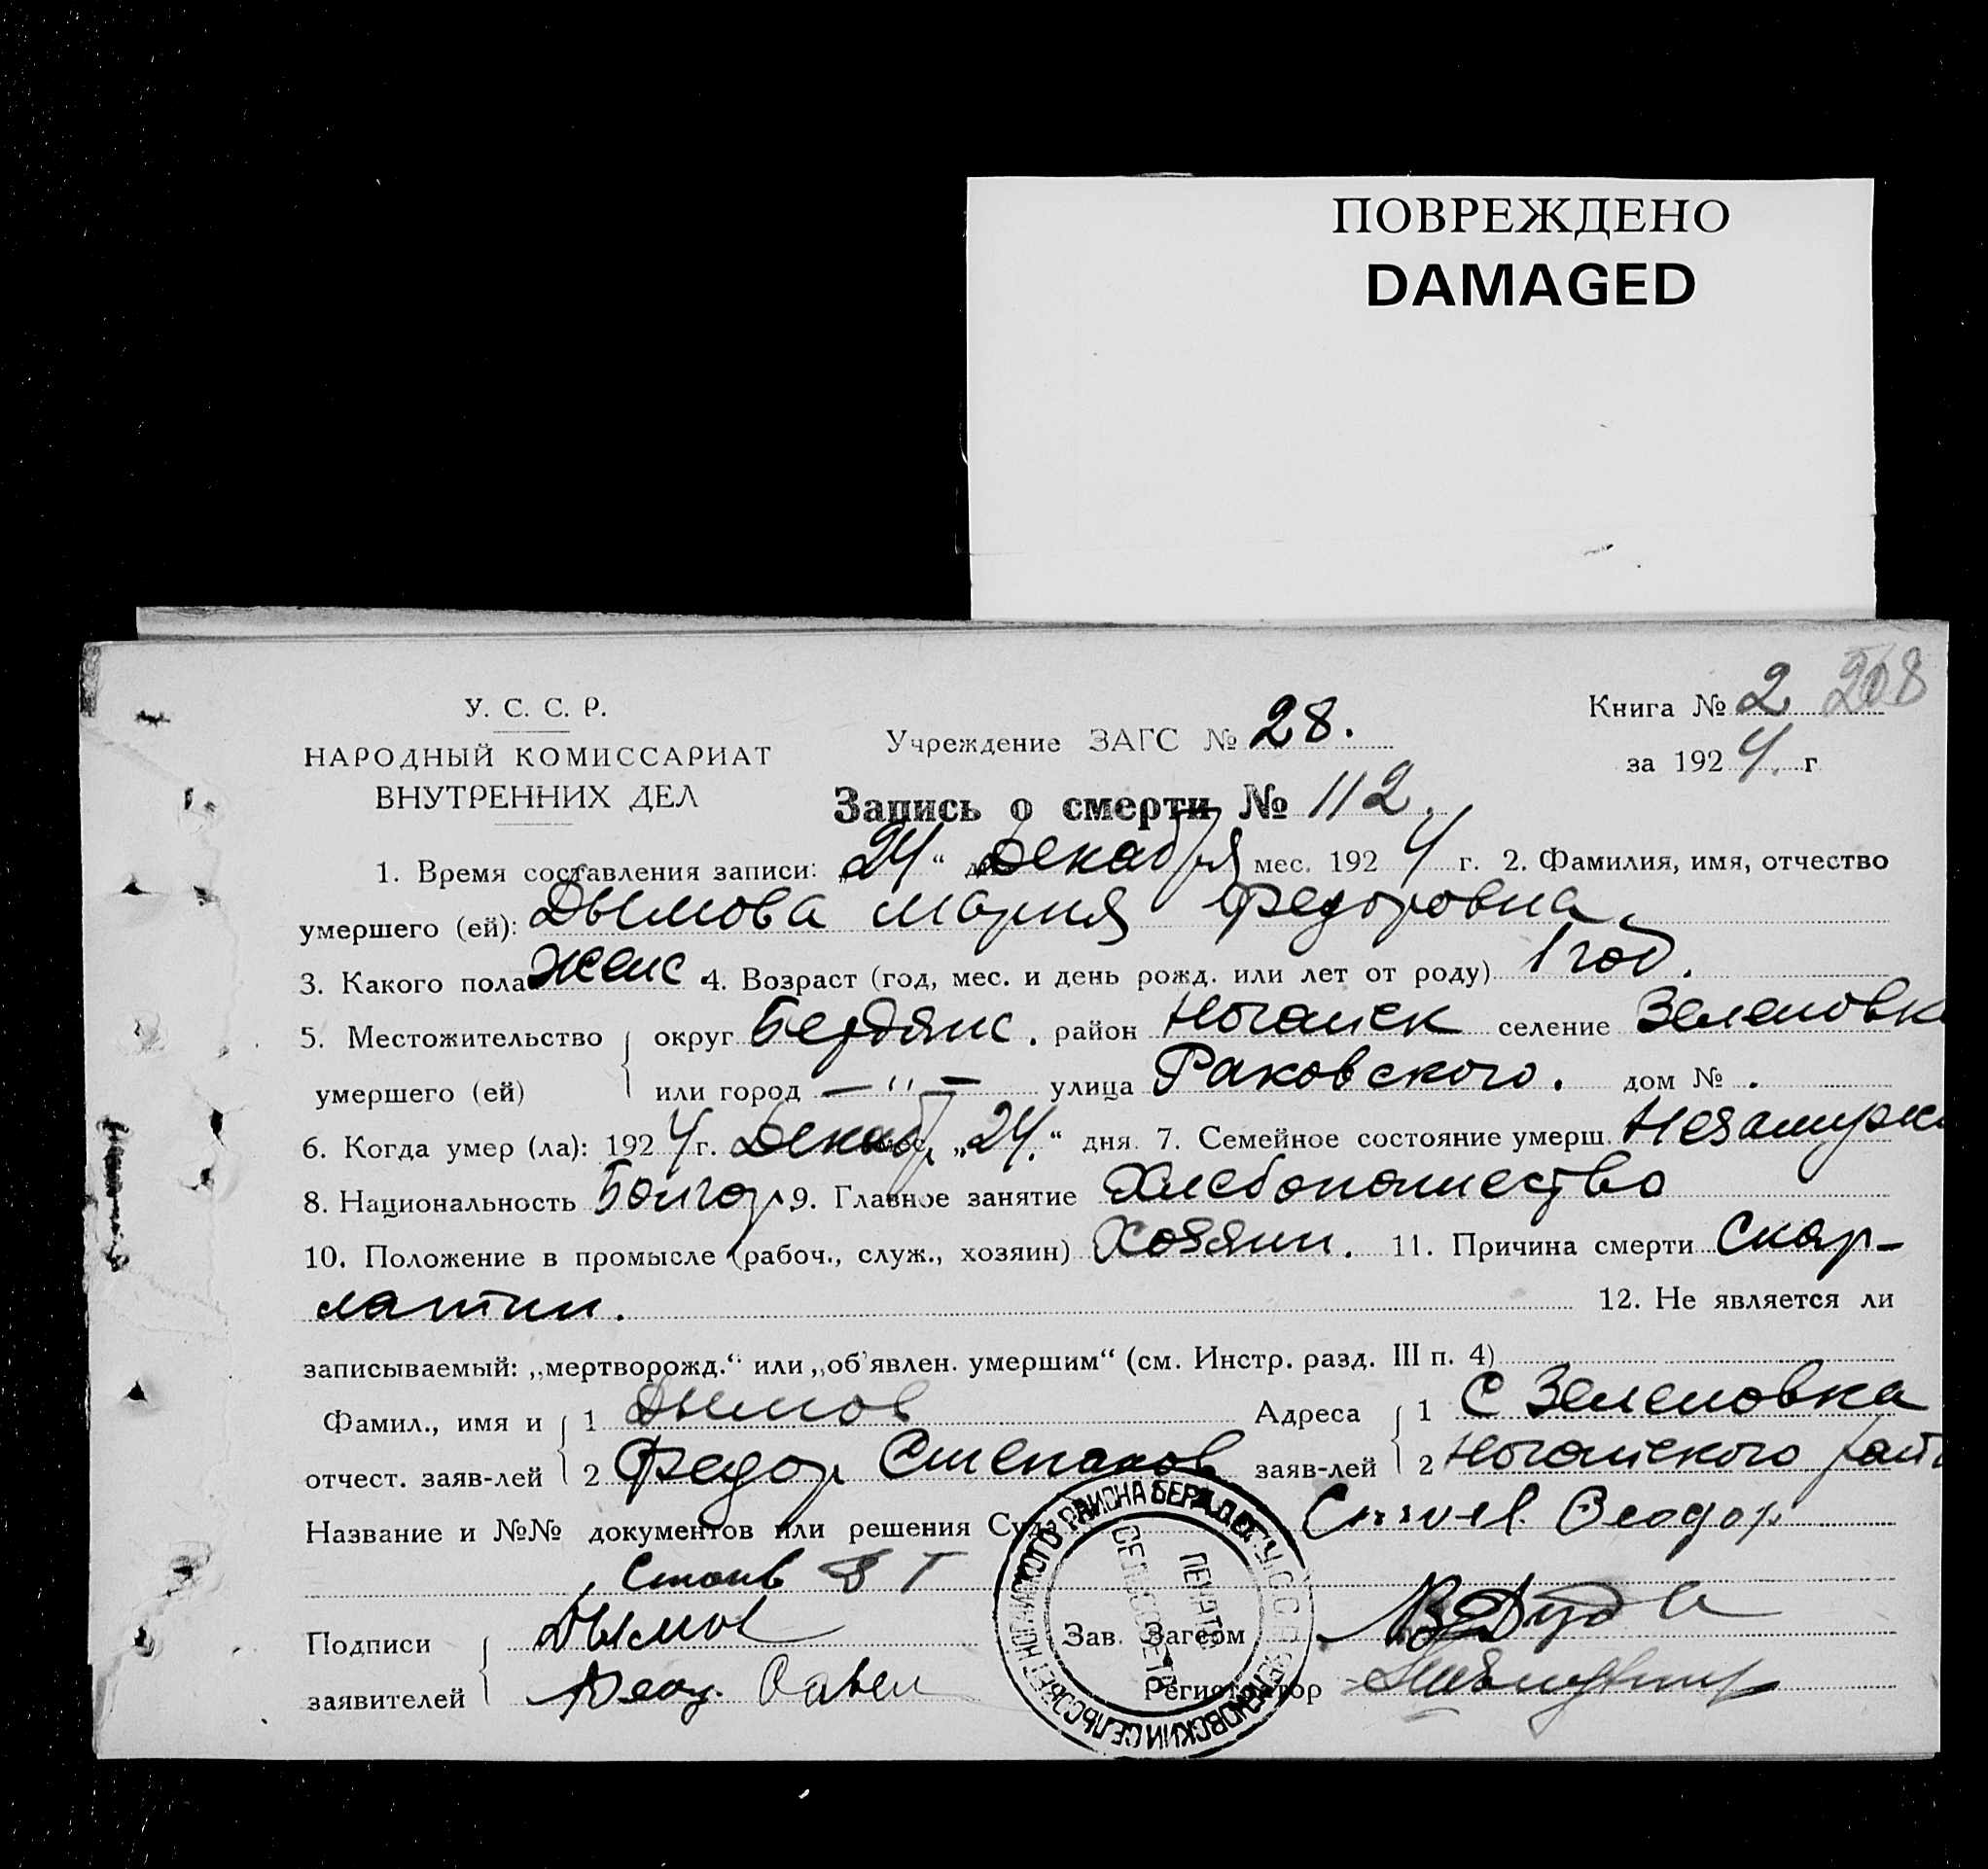 ПОВРЕЖДЕНО
DAMAGED
У. С. С. Р.
НАРОДНЫЙ КОМИССАРИАТ
ВНУТРЕННИХ ДЕЛ
Учреждение ЗАГС № 28.
Книга № 2 208
за 1924 г
Запись о смерти № 112.
1. Время составления записи: „24“ Декабря мес. 1924 г. 2. Фамилия, имя, отчество
умершего (ей): Дымова Мария Федоровна.
3. Какого пола Женс 4. Возраст (год, мес. и день рожд. или лет от роду) 1 год.
5. Местожительство округ Бердянс. район Ногайск селение Зеленовк
умершего (ей) или город — „ — улица Раковского. дом № .
6. Когда умер (ла): 1924 г. Декабр мес. „24.“ дня. 7. Семейное состояние умерш. Незамуж
8. Национальность Болгар 9. Главное занятие Хлебопашество
10. Положение в промысле (рабоч., служ., хозяин) Хозяин. 11. Причина смерти Скар-
латин. 12. Не является ли
записываемый: „мертворожд.“ или „об'явлен. умершим“ (см. Инстр. разд. III п. 4)
Фамил., имя и 1 Дымов Адреса 1 С Зеленовка
отчест. заяв-лей 2 Федор Степанов заяв-лей 2 Ногайского рай
Название и №№ документов или решения Суда
Подписи Дымов Зав. Загсом
заявителей Регистратор
ЗЕЛЕНОВСКИЙ СЕЛЬСОВЕТ НОГАЙСКОГО РАЙОНА БЕРД. У.С.С.Р.
ПЕЧАТЬ
СЕЛЬСОВЕТА